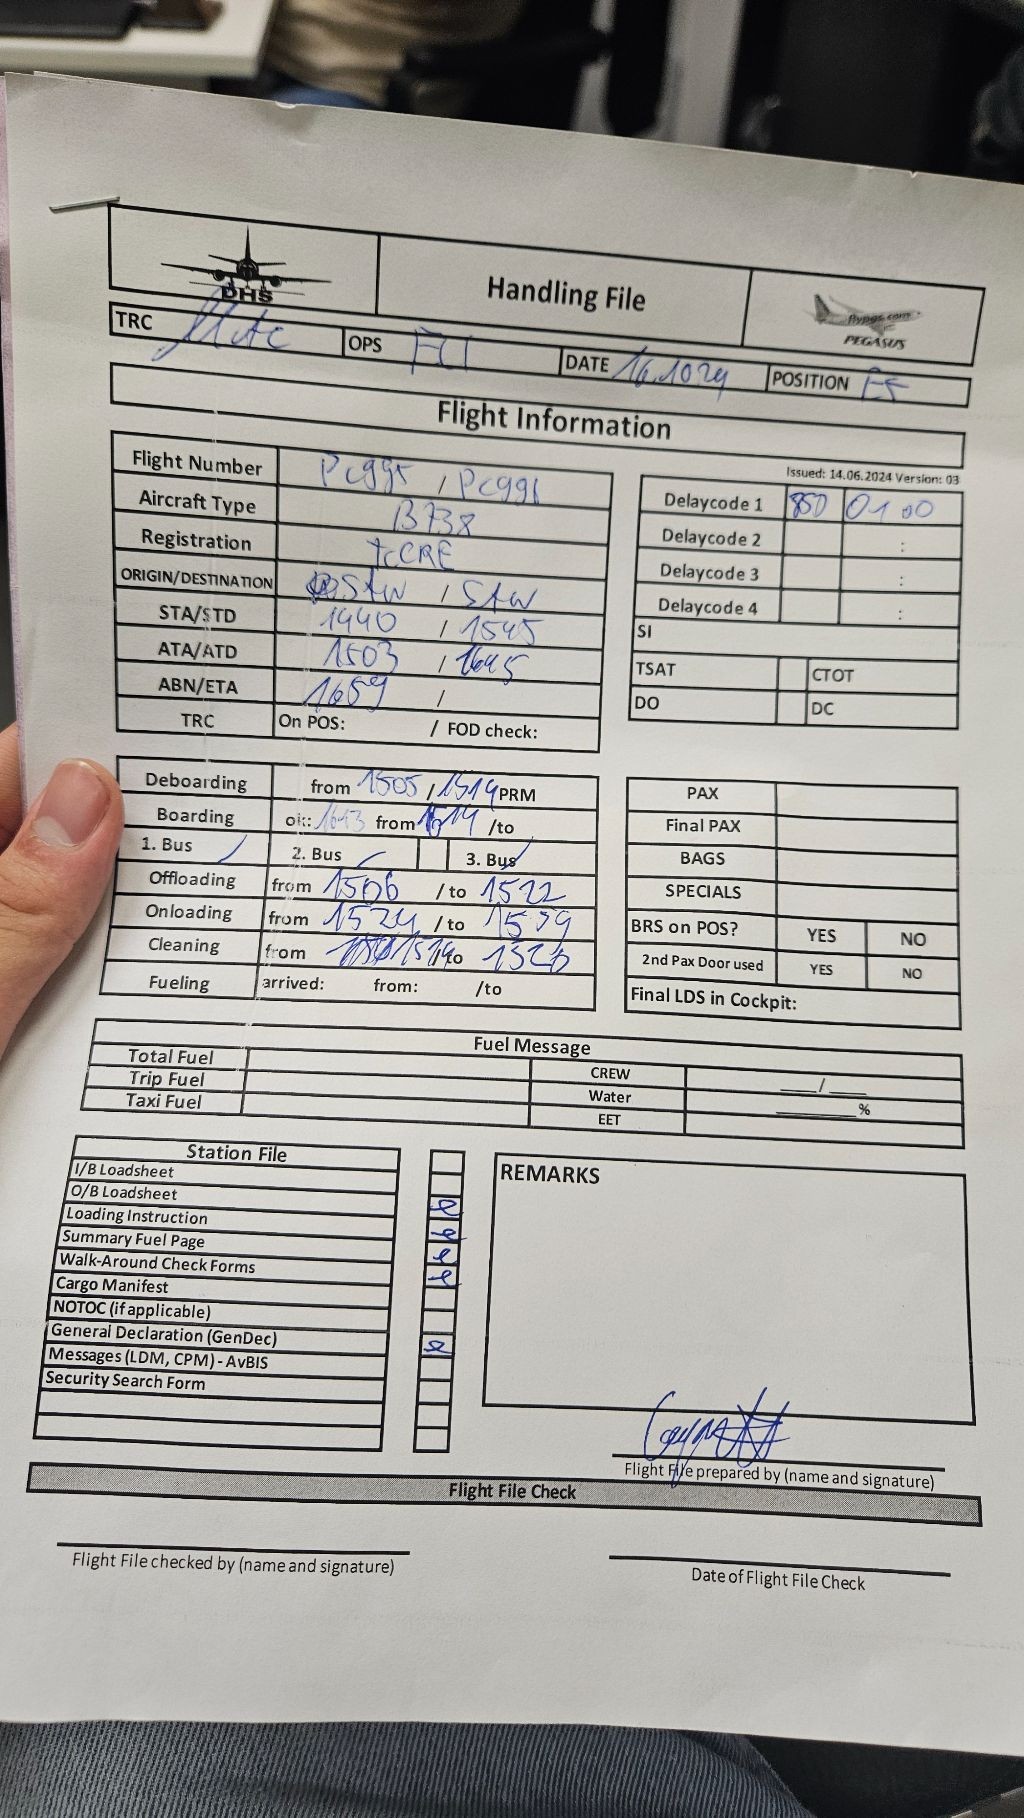 DHS
Handling File
flypgs.com
PEGASUS
TRC
OPS
DATE 16.10 24
POSITION
Flight Information
Issued: 14.06.2024 Version: 03
Flight Number Pc995 / Pc996
Aircraft Type B738
Registration tcCRE
ORIGIN/DESTINATION SAW / SAW
STA/STD 1440 / 1545
ATA/ATD 1503 / 1645
ABN/ETA 1659 /
TRC On POS: / FOD check:
Delaycode 1 85D 01 00
Delaycode 2 :
Delaycode 3 :
Delaycode 4 :
SI
TSAT CTOT
DO DC
Deboarding from 1505 / 1514 PRM
Boarding ok: 1613 from /to
1. Bus 2. Bus 3. Bus
Offloading from 1506 / to 1522
Onloading from 1524 / to
Cleaning from 1514 /to 1526
Fueling arrived: from: /to
PAX
Final PAX
BAGS
SPECIALS
BRS on POS? YES NO
2nd Pax Door used YES NO
Final LDS in Cockpit:
Fuel Message
Total Fuel CREW ___/___
Trip Fuel Water ______%
Taxi Fuel EET
Station File
I/B Loadsheet
O/B Loadsheet
Loading Instruction
Summary Fuel Page
Walk-Around Check Forms
Cargo Manifest
NOTOC (if applicable)
General Declaration (GenDec)
Messages (LDM, CPM) - AvBIS
Security Search Form
REMARKS
Flight File prepared by (name and signature)
Flight File Check
Flight File checked by (name and signature)
Date of Flight File Check